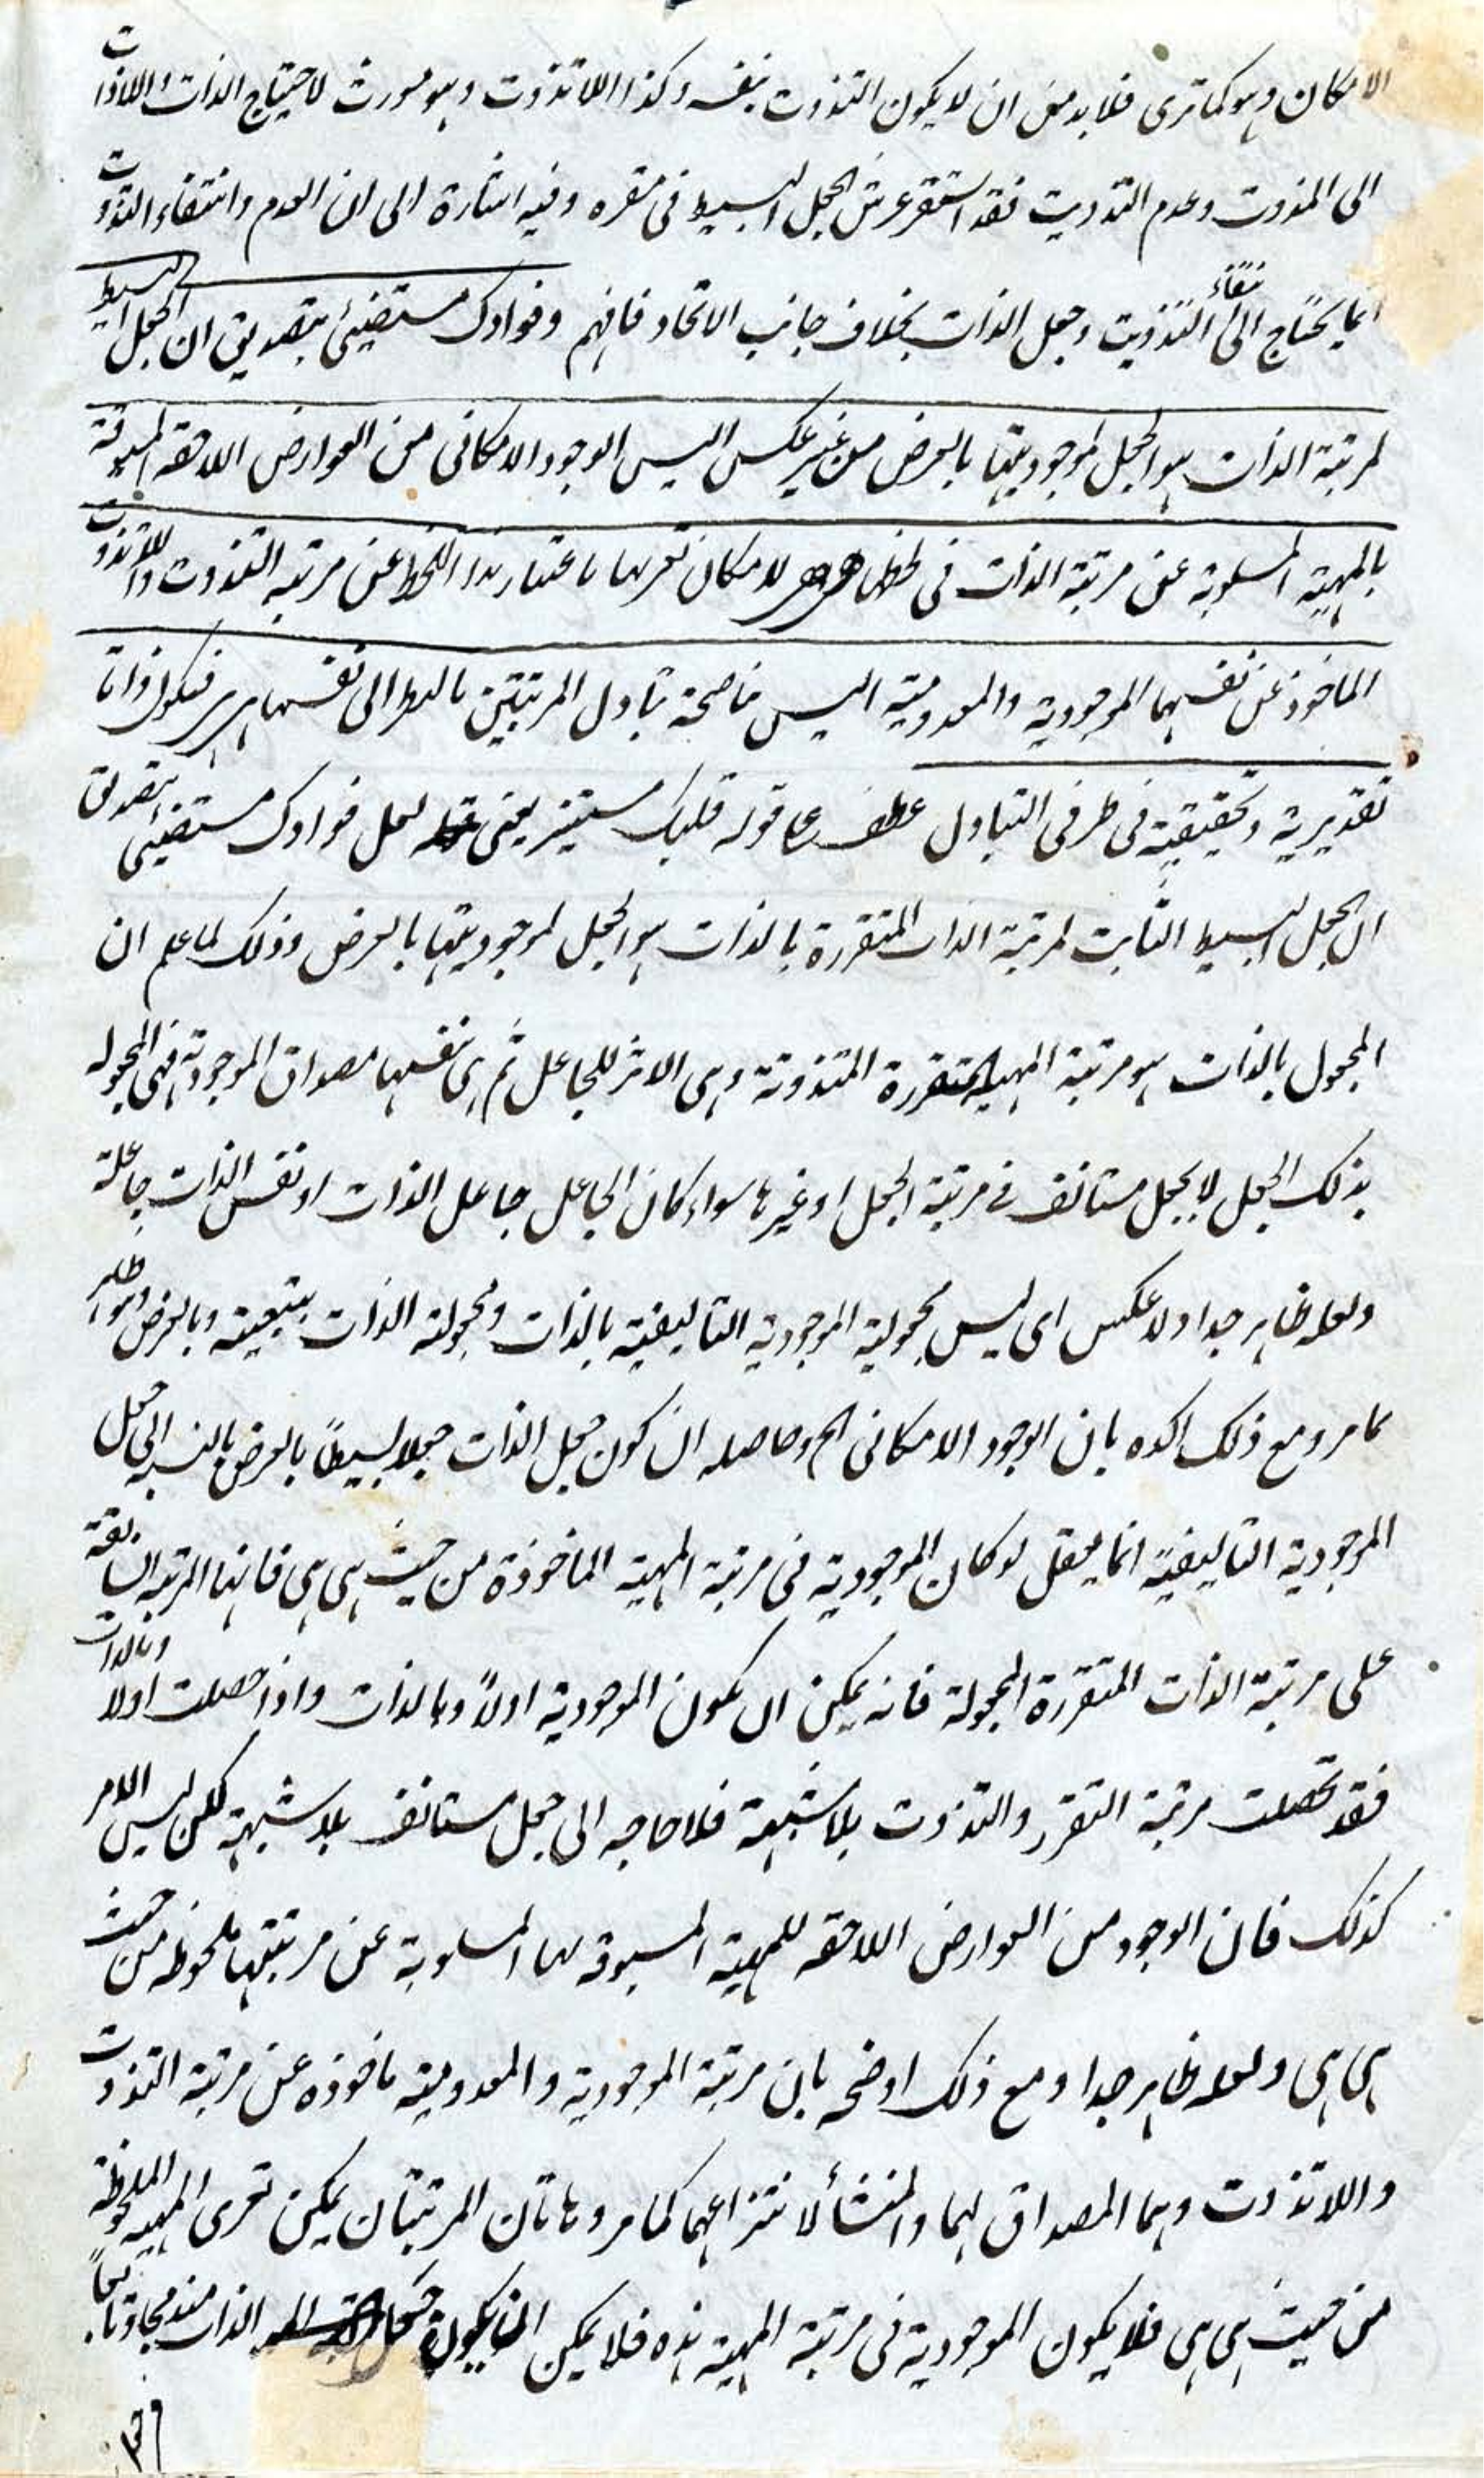 الامكان وهو كما ترى فلا بد من ان لا يكون التذوت بنفسه وكذا اللاتذوت وهو مورث لاحتياج الذات واللاذات
الى المذوت وعدم التذويت فقد استقر عرش الجعل البسيط فى مقره وفيه اشارة الى ان العدم وانتفاء التذوت
انما يحتاج الى انتفاء التذويت وجعل الذات بخلاف جانب الاتحاد فافهم وفوادك مستضيئ بتصديق ان الجعل البسيط
لمرتبة الذات هو الجعل لموجوديتها بالعرض من غير عكس اليس الوجود الامكانى من العوارض اللاحقة المسبوقة
بالمهية المسلوبة عن مرتبة الذات فى لحاظ هى هى لامكان تعريها باعتبار هذا اللحظ عن مرتبة التذوت واللاتذوت
الماخوذ عن نفسهما الموجودية والمعدومية اليس فاصحة تبادل المرتبتين بالنظر الى نفسها هى هى فيكون ذاتا
تقديرية وتحقيقية فى طرفى التبادل عطف على قوله قلبك مستنير يعنى لعل فوادك مستضيئى بتصديق
ان الجعل البسيط الثابت لمرتبة الذات المتقررة بالذات هو الجعل لموجوديتها بالعرض وذلك لما علم ان
المجعول بالذات هو مرتبة المهية المتقررة المتذوتة وهى الاثر للجاعل ثم هى نفسها مصداق الموجودية فهى المجعوله
بذلك الجعل لا بجعل مستانف فى مرتبة الجعل او غيرها سواء كان الجاعل جاعل الذات او نفس الذات جاعلة
ولعله ظاهر جدا ولا عكس اى ليس مجعولية الموجودية التاليفية بالذات ومجعولية الذات بتبعيته وبالعرض وهو ظاهر
مما مر ومع ذلك اكده بان الوجود الامكانى الخ وحاصله ان كون جعل الذات جعلا بسيطاً بالعرض بالنسبه الى جعل
الموجودية التاليفية انما يعقل لو كان الموجودية فى مرتبة المهية الماخوذة من حيث هى هى فانها المرتبة السابقة
على مرتبة الذات المتقررة المجعولة فانه يمكن ان يكون الموجودية اولاً وبالذات واذا حصلت اولا وبالذات
فقد تحصلت مرتبة التقرر والتذوت بلا شبهة فلا حاجه الى جعل مستانف بلا شبهة لكن ليس الامر
كذلك فان الوجود من العوارض اللاحقه للمهية المسبوقة بها المسلوبة عن مرتبتها ملحوظه من حيث
هى هى ولعله ظاهر جدا ومع ذلك اوضحه بان مرتبة الموجودية والمعدومية ماخوذه عن مرتبة التذوت
واللاتذوت وهما المصداق لهما والمنشأ لانتزاعهما كما مر وهاتان المرتبتان يمكن تعرى المهية الملحوظة
من حيث هى هى فلا يكون الموجودية فى مرتبة المهية هذه فلا يمكن ان يكون جعل الذات